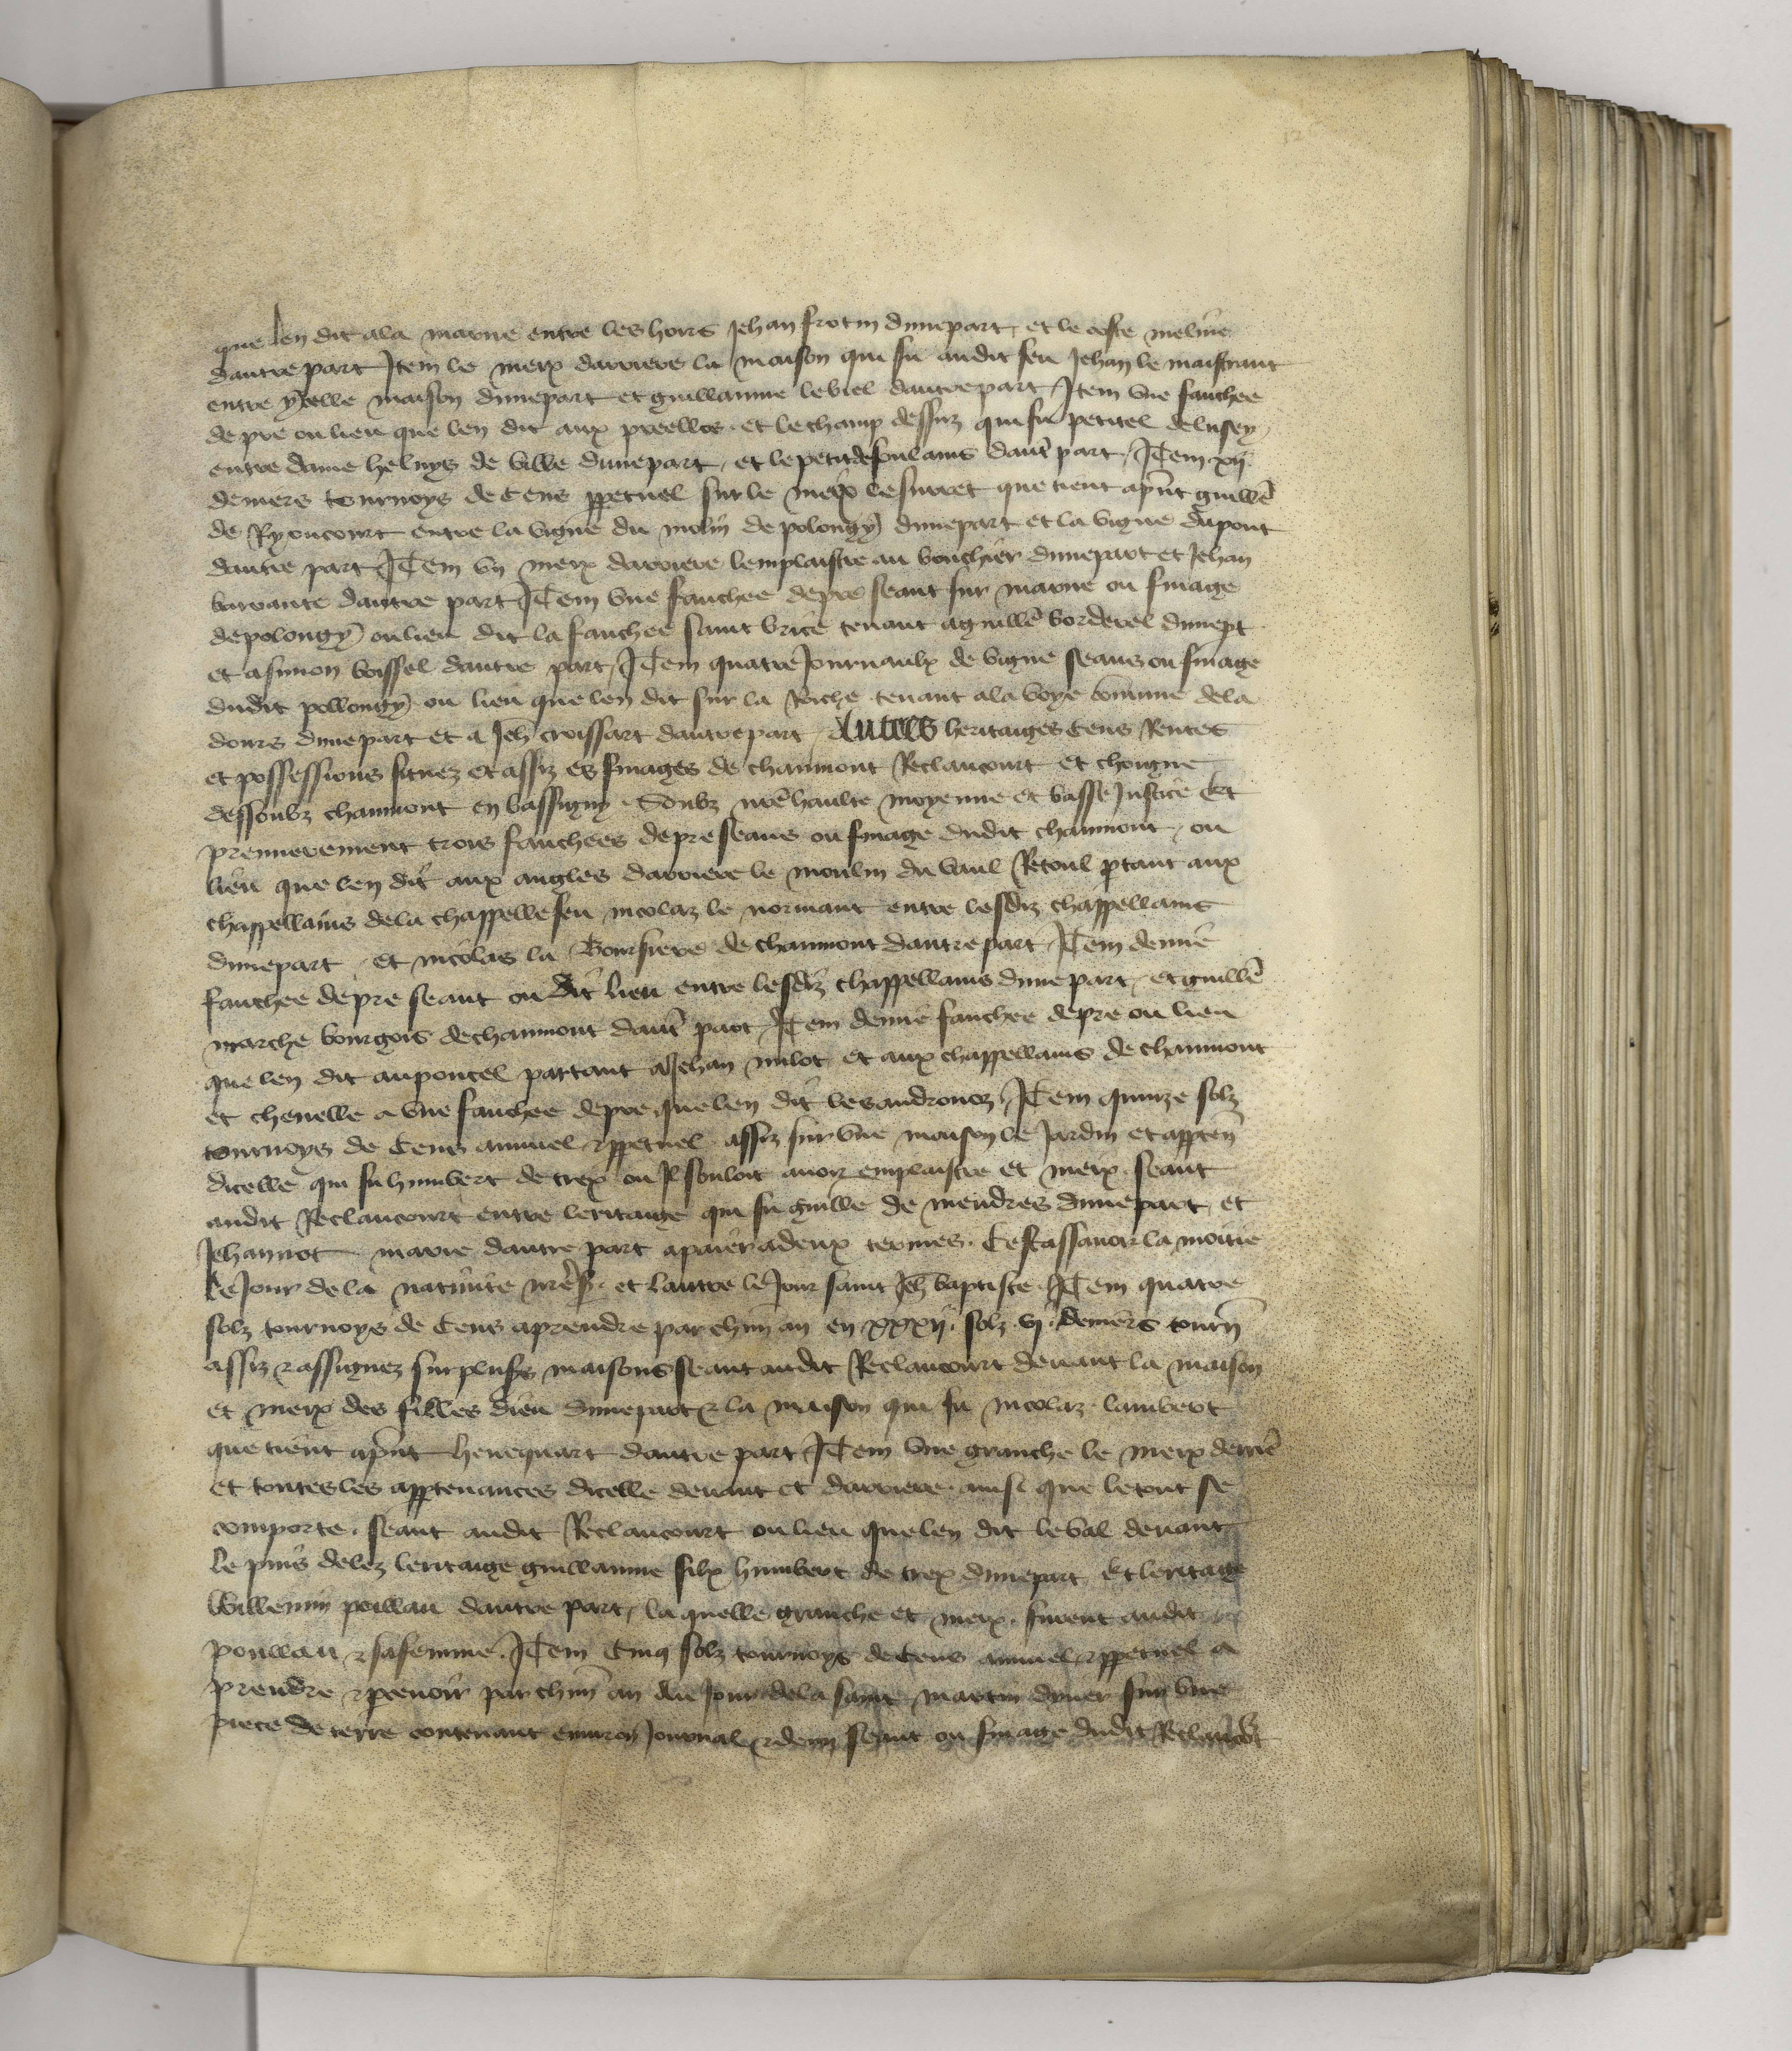 que len dit ala marne entre les hoirs Jehan frotin dunepart, et le coste
dautre part Item le meix darriere la maison qui fu audit feu Jehan le maistrant
entre ycelle maison dunepart et guillaume leviel dautrepart, Item vne fauchee
de pre ou lieu que len dit aux preelles et le champ dessuz qui fu petitel de lusey,
entre dame heluys de ville dunepart, et le petit de foulains dautͤ part, Item xij
deniers tournoys de Cens ppetuel sur le meix le surret que tient apn̄t guillē
de Ryoucourt entre la vigne du molin de polongy dunepart et la vigne dupont
dautre part Item vn meix darriere lemplaistre au bouchier dunepart et Jehan
barvante dautre part Item vne fauchee depre seant sur marne ou finage
depolongy oulieu dit la fauchee saint brice tenant aguillē bordevel dunept
et asimon boissel dautre part, Item quatre Journaulx de vigne seans ou finage
dudit pollongy ou lieu que len dit sur la Roiche tenant ala voye commune dela
dours dunepart et a Jeh croissart dautrepart, Autres heritaiges Cens Rentes
et possessions situez et assiz es finages de chaumont Reclancourt et choigne
dessoubz chaumont en bassigny. Soubz nrē haulte moyenne et basse Justice Et
premierement trois fauchees depre seans ou finage dudit chaumont, ou
lieu que len dit aux angles darriere le moulin du vaul Retoul ptant aux
chappellains dela chappelle feu nicolaz le normant entre lesdiz chappellains
dunepart, et nicolas la Boursiere de chaumont dautrepart, Item demie
fauchee depre seant ou dit lieu entre lesdiz chappellains dune part, et guillē
marche bourgois dechaumont dautͤ part, Item demie fauchee depre ou lieu
que len dit auponcel partant aJehan milot et aux chappellains de chaumont
et chenelle a vne fauchee depre que len dit lesandronez, Item quinze solz
tournoys de Cens annuel ⁊ppetuel assiz sur vne maison le Jardin et apptenˉ
dicelle qui fu humbert de trex ou Il souloit auoir emplaistre et meix. seant
audit Reclancourt entre leritaige qui fu guille de mendres dunepart, et
Jehannot marie dautre part apaier adeux termes. Cest assauoir la moitie
le Jour de la natiuite nrēs. et lautre le Jour saint Jeh baptiste. Item quatre
solz tournoys de Cens aprendre par chūn an en xxxij. solz. vj. deniers tourn̄
assiz ⁊ assignez sur plusrs maisons seant audit Reclancourt deuant la maison
et meix des filles dieu dunepart ⁊ la maison qui fu nicolaz lambert
que tient apn̄t henequart dautre part Item vne granche le meix derriē
et toutes les apptenances dicelle deuant et darriere. ainsi que letout se
comporte. seant audit Reclancourt oulieu quelen dit leval deuant
le puis delez leritaige guillaume filx humbert de trex dunepart Et leritaige
Willemin poillau dautre part, la quelle granche et meix. furent audit
poillau ⁊ safemme. Item Cinq solz tournoys deCens annuel ⁊ppetuel a
prendre ⁊pceuoir par chūn an au Jour dela saint martin dyuer sur vne
piece de terre contenant enuiron Journal ⁊demj seant ou finage dudit Reclancōt